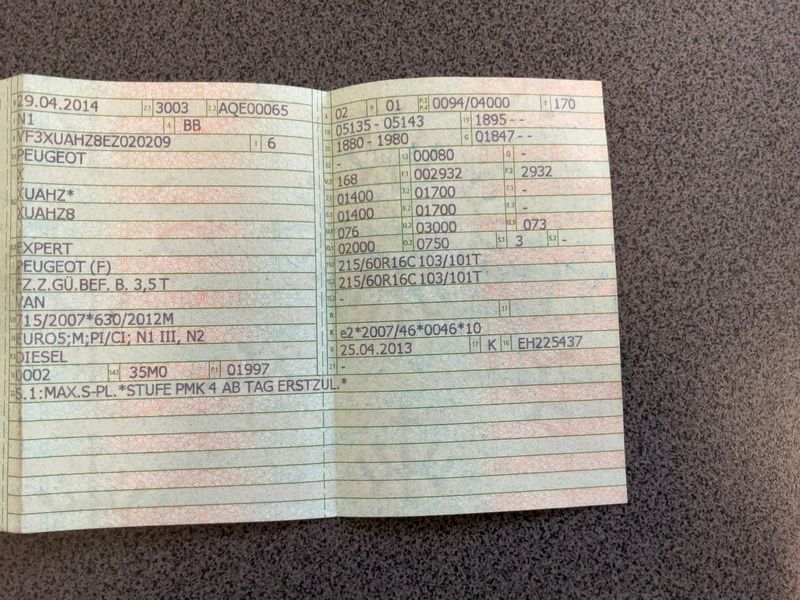 29.04.2014 2.1 3003 2.2 AQE00065
N1 4 BB
VF3XUAHZ8EZ020209 3 6
PEUGEOT
X
XUAHZ*
XUAHZ8
EXPERT
PEUGEOT (F)
FZ.Z.GÜ.BEF. B. 3,5 T
VAN
715/2007*630/2012M
EURO5;M;PI/CI; N1 III, N2
DIESEL
0002 35M0 P.1 01997
S.1:MAX.S-PL.*STUFE PMK 4 AB TAG ERSTZUL.*
L 02 9 01 P.2 P.4 0094/04000 T 170
18 05135 - 05143 19 1895 - -
20 1880 - 1980 G 01847 - -
12 - 13 00080 Q -
V.7 168 F.1 002932 F.2 2932
7.1 01400 7.2 01700 7.3 -
8.1 01400 8.2 01700 8.3 -
U.1 076 U.2 03000 U.3 073
O.1 02000 O.2 0750 S.1 3 S.2 -
15.1 215/60R16C 103/101T
15.2 215/60R16C 103/101T
15.3 -
R 11
K e2*2007/46*0046*10
6 25.04.2013 17 K 16 EH225437
21 -